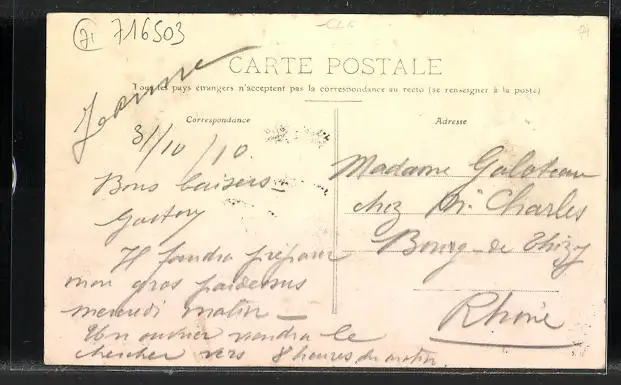 71 716503
CLF
71
CARTE POSTALE
Tous les pays étrangers n'acceptent pas la correspondance au recto (se renseigner à la poste)
Correspondance
Jeanne
31/10/10.
Bons baisers
Gaston
Il faudra préparer
mon gros pardessus
mercredi matin
Un ouvrier viendra le
chercher vers 8 heures du matin
Adresse
Madame Galoteau
chez Mr Charles
Bourg-de Thizy
Rhône